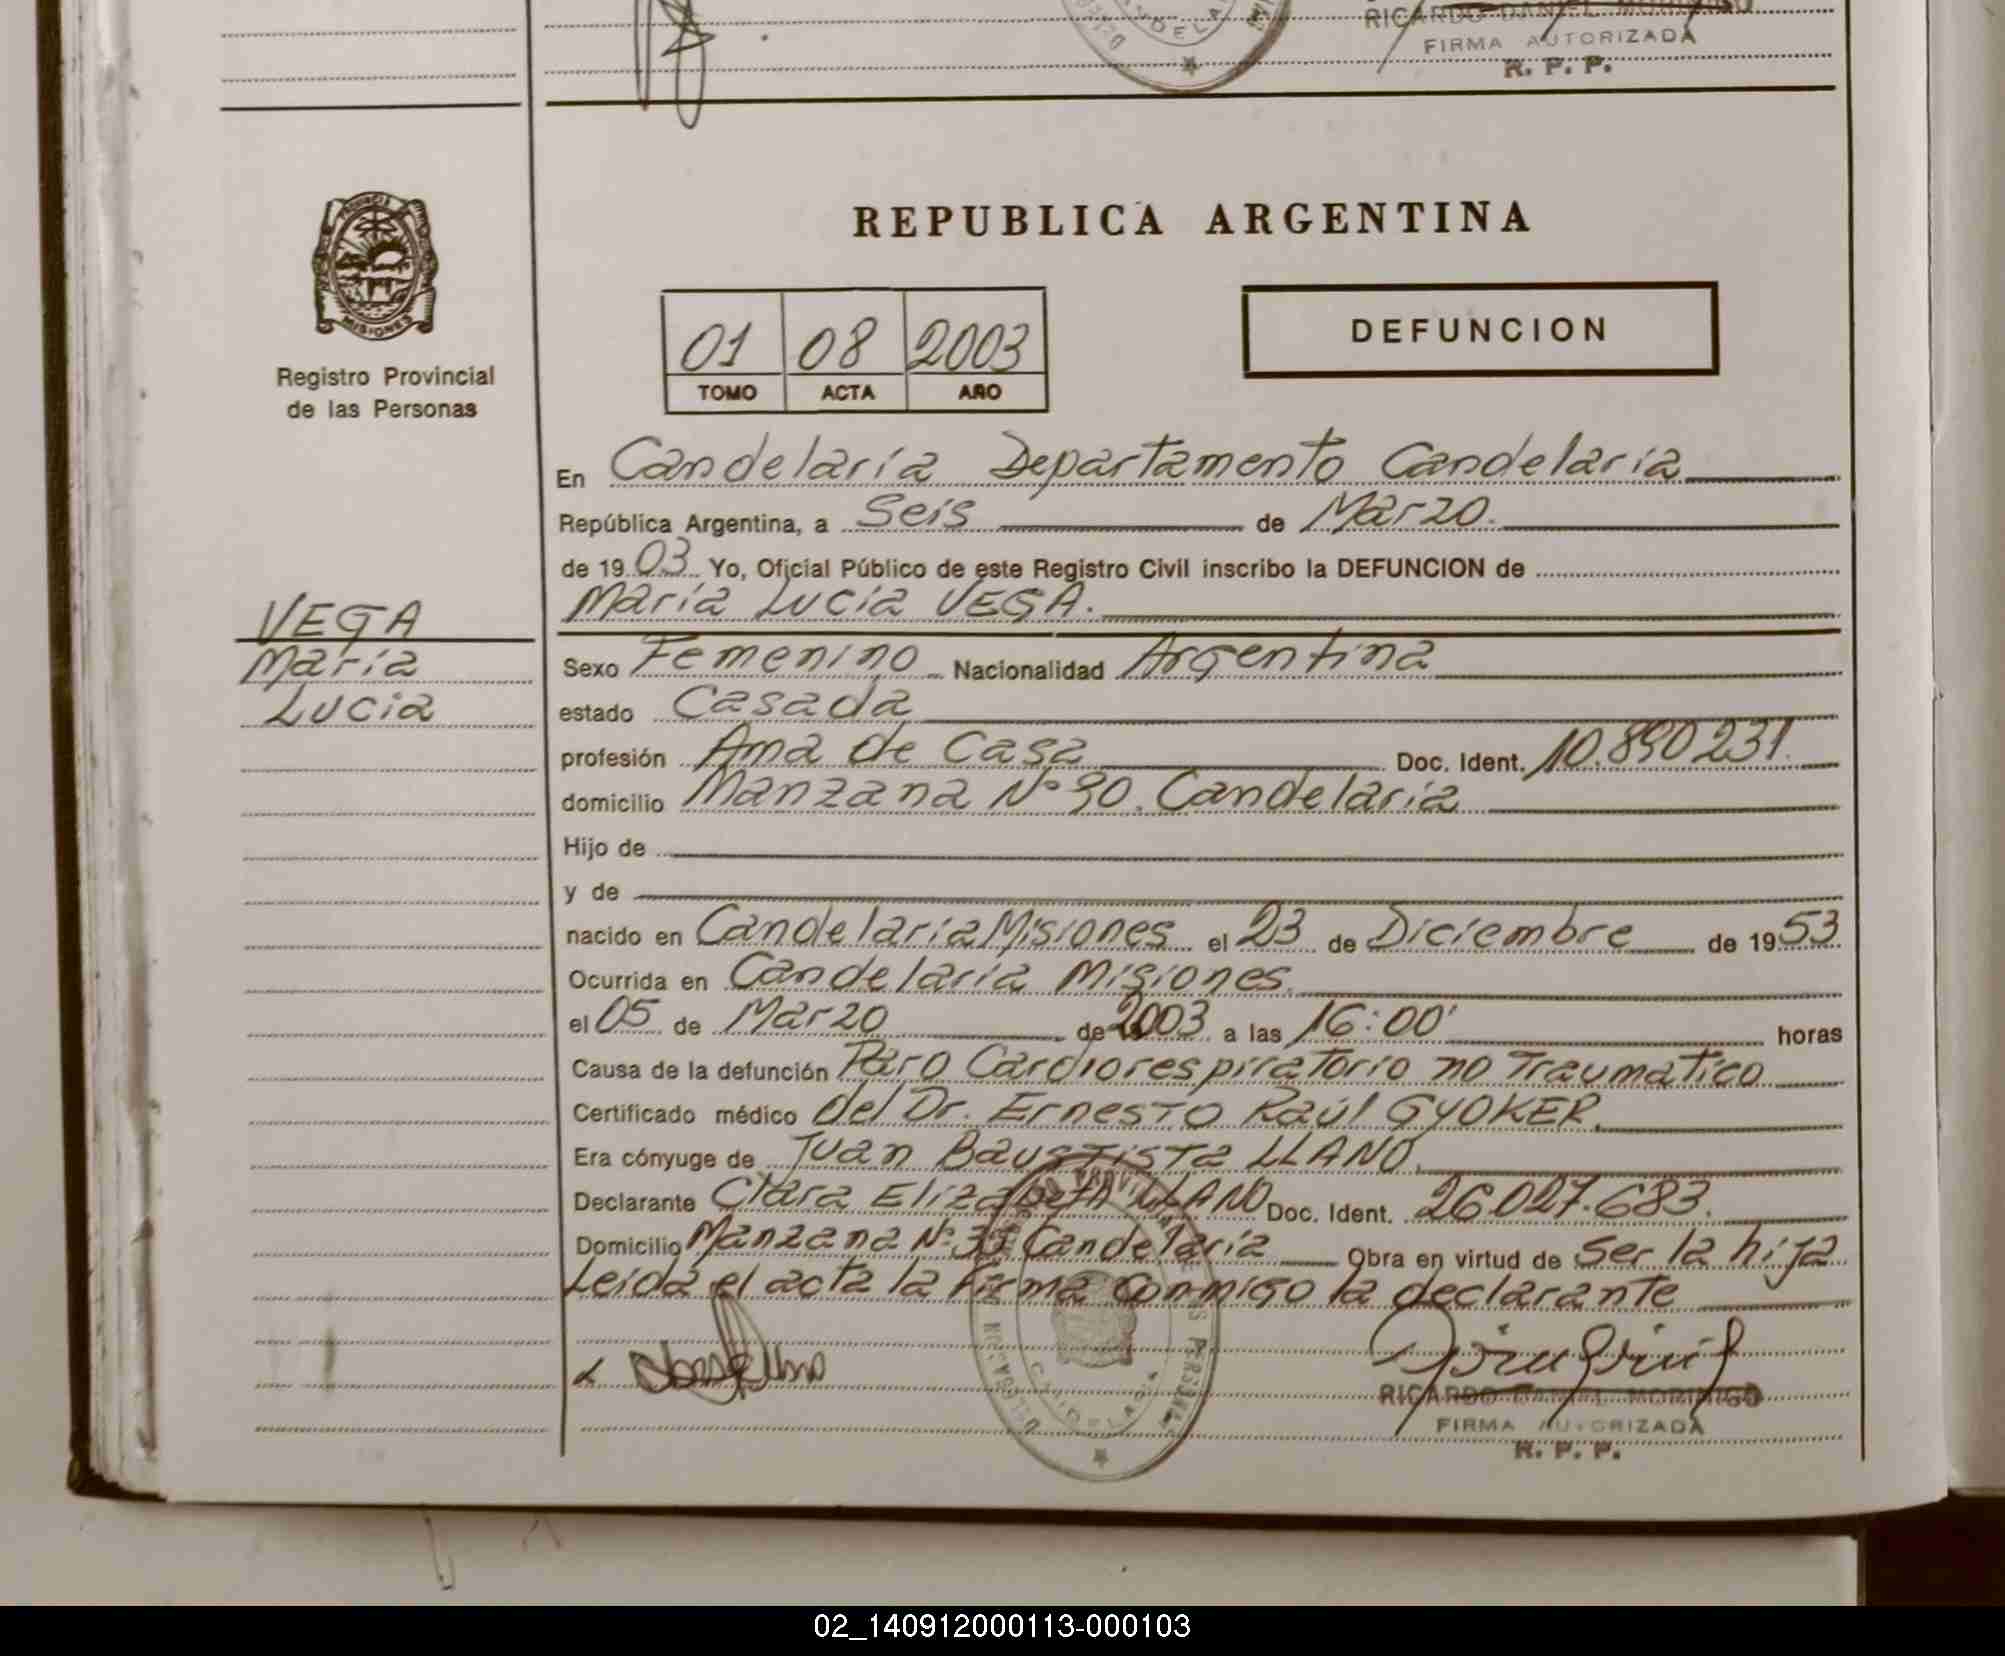 RICARDO DANIEL MORINIGO
FIRMA AUTORIZADA
R. P. P.
MISIONES
Registro Provincial
de las Personas
REPUBLICA ARGENTINA
01 08 2003
TOMO ACTA AÑO
DEFUNCION
En Candelaria Departamento Candelaria
República Argentina, a Seis de Marzo.
de 19 03 Yo, Oficial Público de este Registro Civil inscribo la DEFUNCION de
María Lucia VEGA.
VEGA
María
Lucia
Sexo Femenino Nacionalidad Argentina
estado Casada
profesión Ama de Casa Doc. Ident. 10.890231.
domicilio Manzana Nº 30. Candelaria
Hijo de
y de
nacido en Candelaria Misiones el 23 de Diciembre de 19 53
Ocurrida en Candelaria Misiones.
el 05 de Marzo de 2003 a las 16:00' horas
Causa de la defunción Paro Cardiorespiratorio no Traumatico
Certificado médico del Dr. Ernesto Raúl GYOKER.
Era cónyuge de Juan Bautista LLANO.
Declarante Clara Elizabeth LLANO Doc. Ident. 26027.683.
Domicilio Manzana Nº 30 Candelaria Obra en virtud de Ser la hija
Leída el acta la firma conmigo la declarante
RICARDO DANIEL MORINIGO
FIRMA AUTORIZADA
R. P. P.
02_140912000113-000103